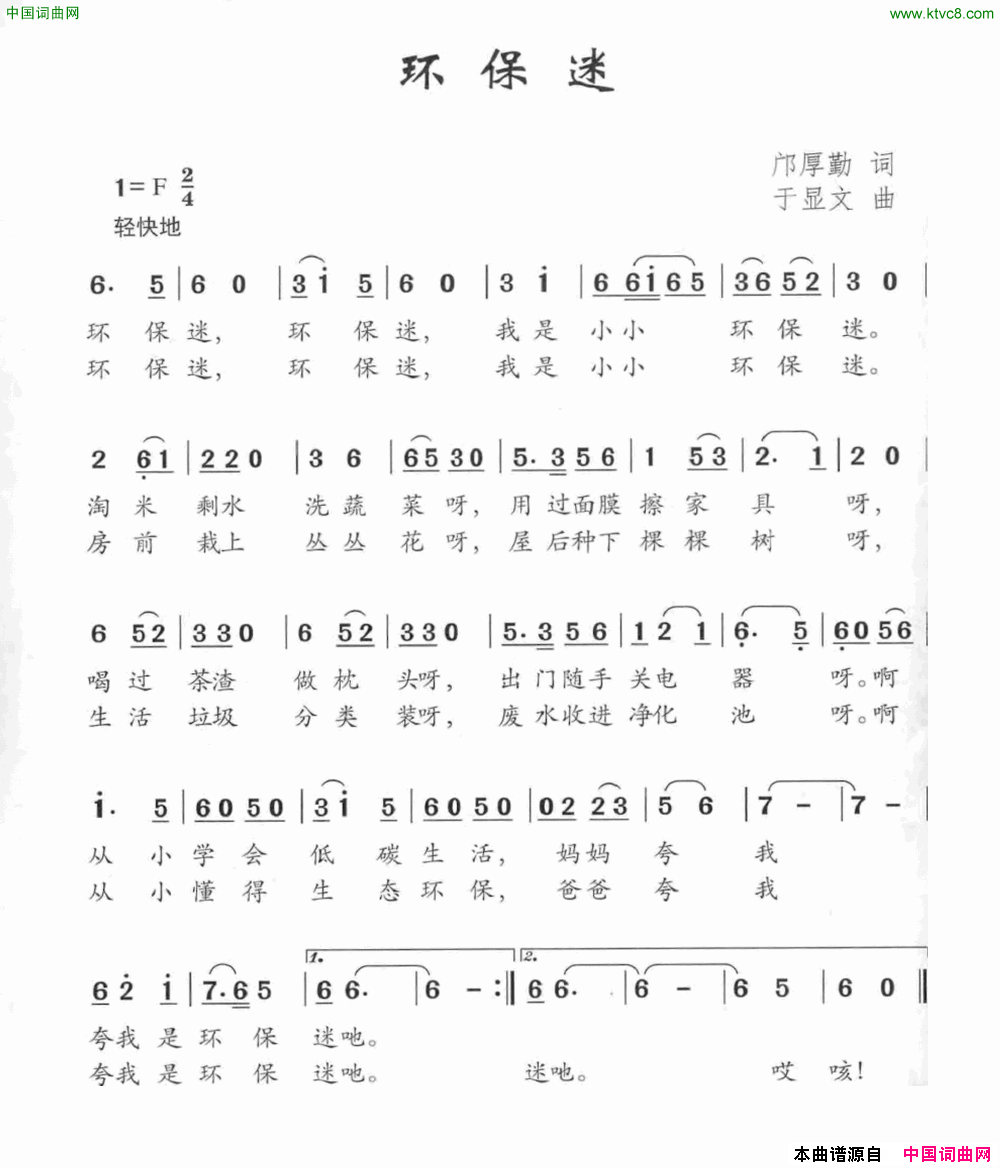 中国词曲网 www.ktvc8.com
环保迷
邝厚勤 词
1=F 2/4
于显文 曲
轻快地
6· 5 | 6 0 | 3 i 5 | 6 0 | 3 i | 6 6 i 6 5 | 3 6 5 2 | 3 0 |
环 保 迷, 环 保 迷, 我 是 小 小 环 保 迷。
环 保 迷, 环 保 迷, 我 是 小 小 环 保 迷。
2 6 1 | 2 2 0 | 3 6 | 6 5 3 0 | 5· 3 5 6 | 1 5 3 | 2· 1 | 2 0 |
淘 米 剩水 洗 蔬 菜 呀, 用 过面膜 擦 家 具 呀,
房 前 栽上 丛 丛 花 呀, 屋 后种下 棵 棵 树 呀,
6 5 2 | 3 3 0 | 6 5 2 | 3 3 0 | 5· 3 5 6 | 1 2 1 | 6· 5 | 6 0 5 6 |
喝 过 茶渣 做 枕 头呀, 出 门随手 关电 器 呀。啊
生 活 垃圾 分 类 装呀, 废 水收进 净化 池 呀。啊
i· 5 | 6 0 5 0 | 3 i 5 | 6 0 5 0 | 0 2 2 3 | 5 6 | 7 - | 7 - |
从 小 学 会 低 碳 生 活, 妈妈 夸 我
从 小 懂 得 生 态 环 保, 爸爸 夸 我
1. 2.
6 2 i | 7· 6 5 | 6 6· | 6 - :‖ 6 6· | 6 - | 6 5 | 6 0 ‖
夸我 是 环 保 迷吔。
夸我 是 环 保 迷吔。 迷吔。 哎 咳!
本曲谱源自 中国词曲网